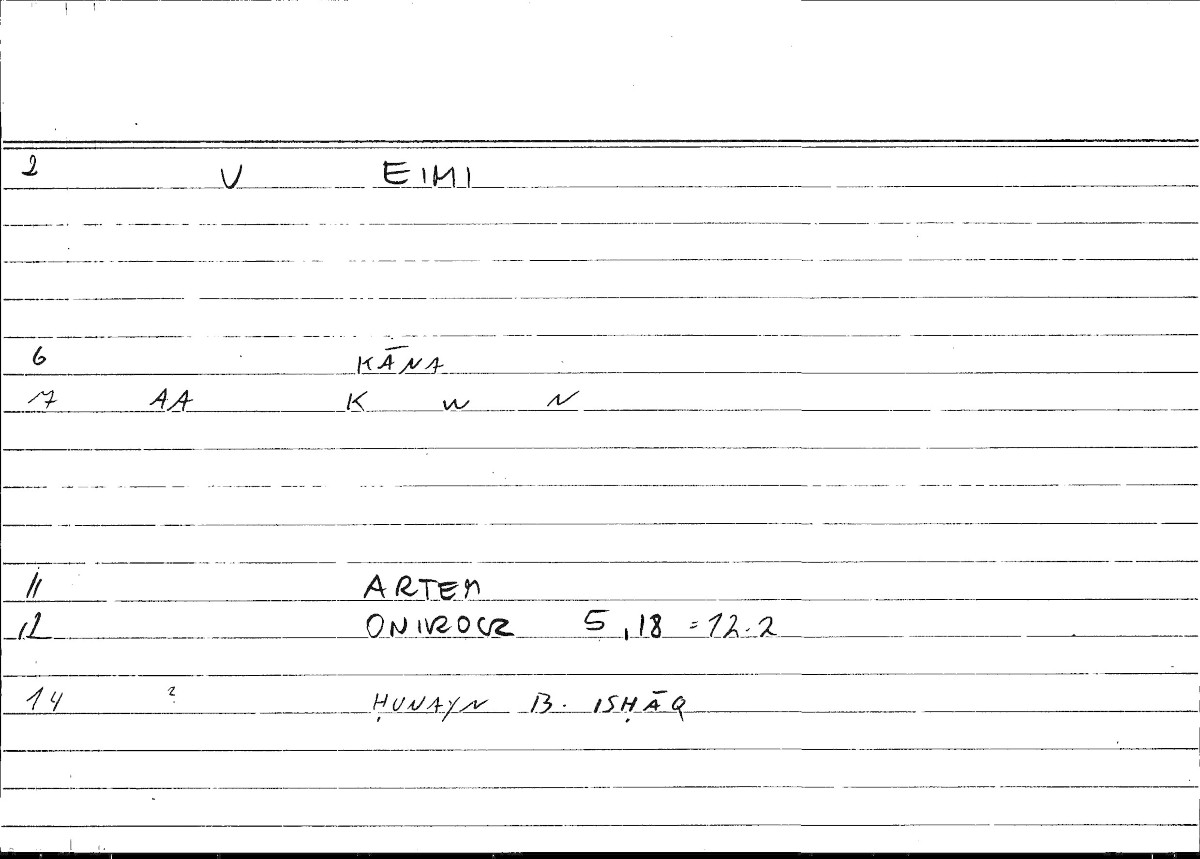 2 V EIMI
6 KĀNA
7 AA K W N
11 ARTEM
12 ONIROCR 5,18 = 12.2
14 ? ḤUNAYN B. ISḤĀQ